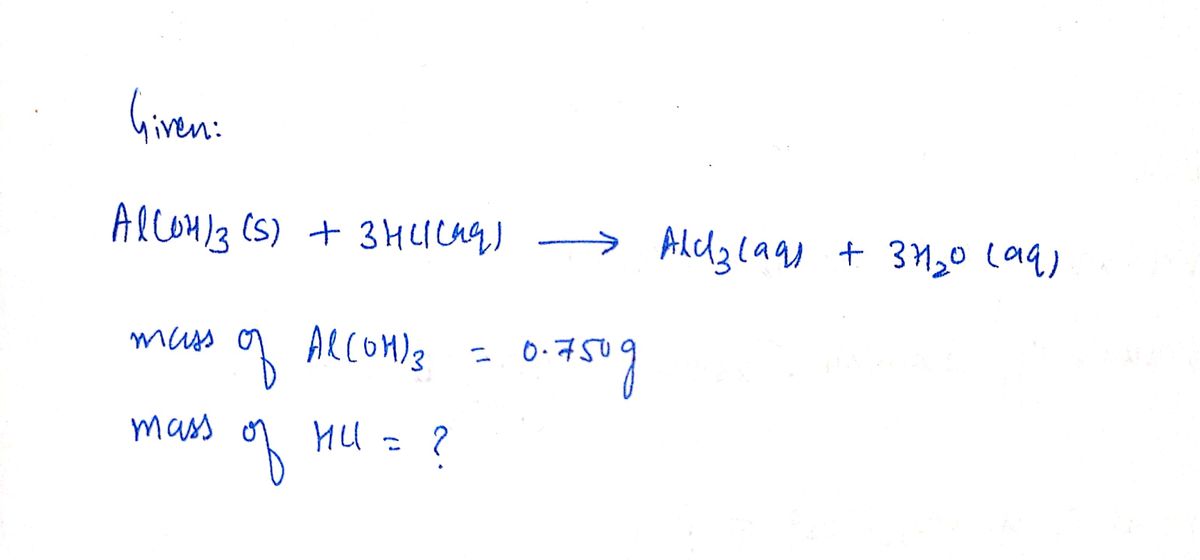 Given:
Al(OH)3 (s) + 3HCl(aq) ⟶ AlCl3(aq) + 3H2O (aq)
mass of Al(OH)3 = 0.750g
mass of HCl = ?